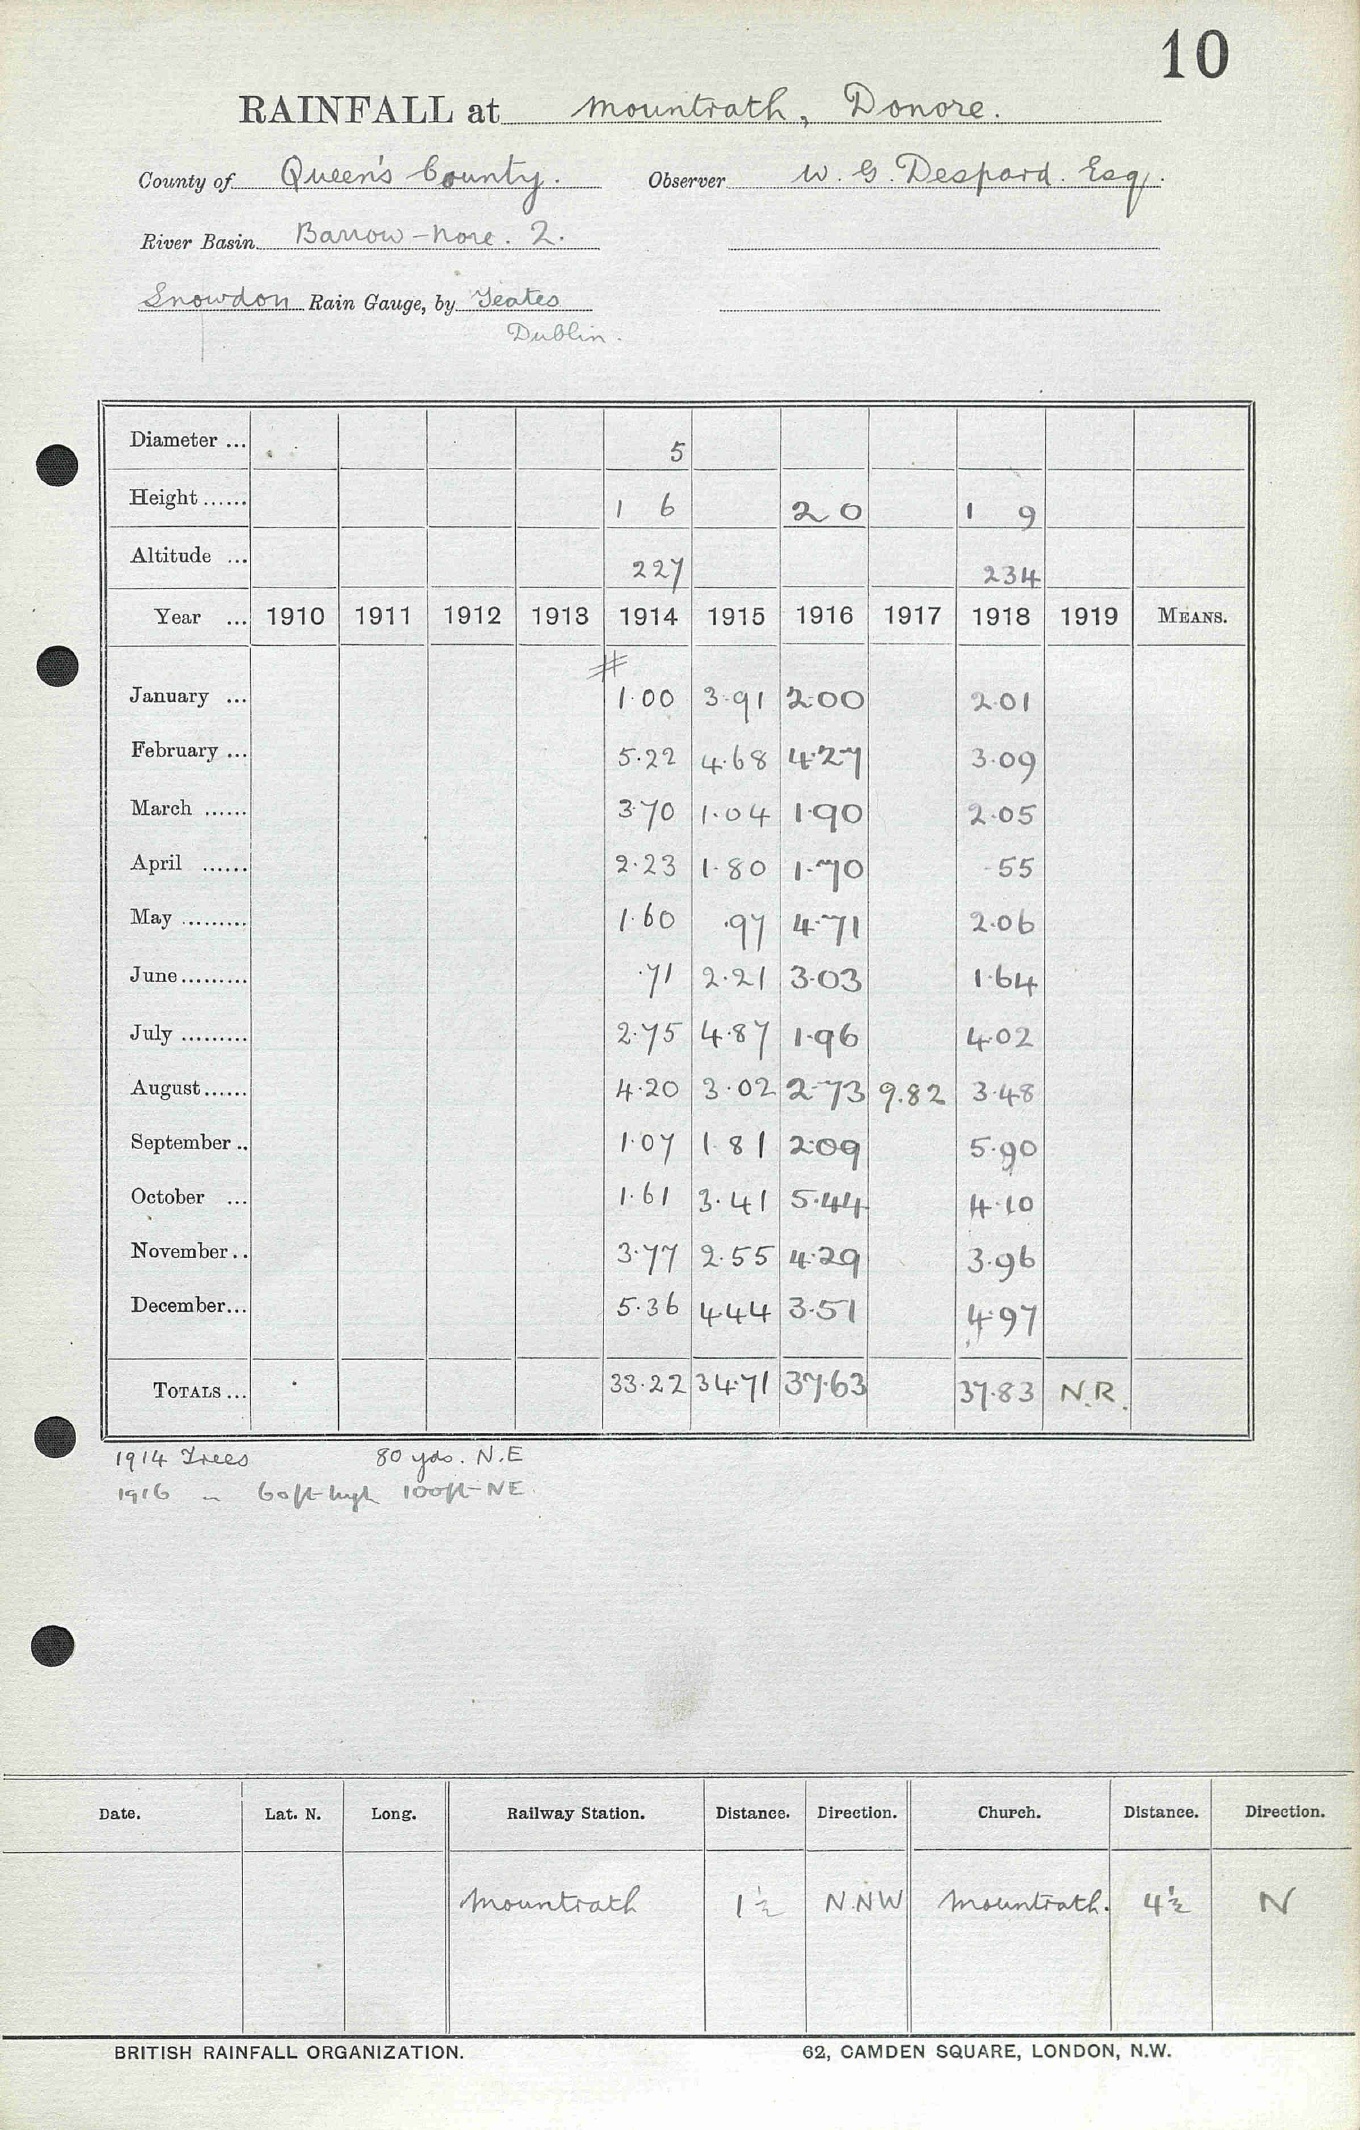 10
RAINFALL at Mountrath, Donore.
County of Queen's County. Observer W. G. Despard. Esq.
River Basin Barrow-Nore. 2.
Snowdon Rain Gauge, by Yeates
Dublin.
Diameter ... 5
Height ...... 1 6 2 0 1 9
Altitude ... 227 234
Year ... 1910 1911 1912 1913 1914 1915 1916 1917 1918 1919 MEANS.
#
January ... 1.00 3.91 2.00 2.01
February ... 5.22 4.68 4.27 3.09
March ...... 3.70 1.04 1.90 2.05
April ...... 2.23 1.80 1.70 .55
May ......... 1.60 .97 4.71 2.06
June ......... .71 2.21 3.03 1.64
July ......... 2.75 4.87 1.96 4.02
August ...... 4.20 3.02 2.73 9.82 3.48
September .. 1.07 1.81 2.09 5.90
October ... 1.61 3.41 5.44 4.10
November .. 3.77 2.55 4.29 3.96
December ... 5.36 4.44 3.51 4.97
TOTALS ... 33.22 34.71 37.63 37.83 N.R.
1914 Trees 80 yds. N.E
1916 " 60ft high 100ft NE.
Date. Lat. N. Long. Railway Station. Distance. Direction. Church. Distance. Direction.
Mountrath 1½ N.NW Mountrath. 4½ N
BRITISH RAINFALL ORGANIZATION. 62, CAMDEN SQUARE, LONDON, N.W.